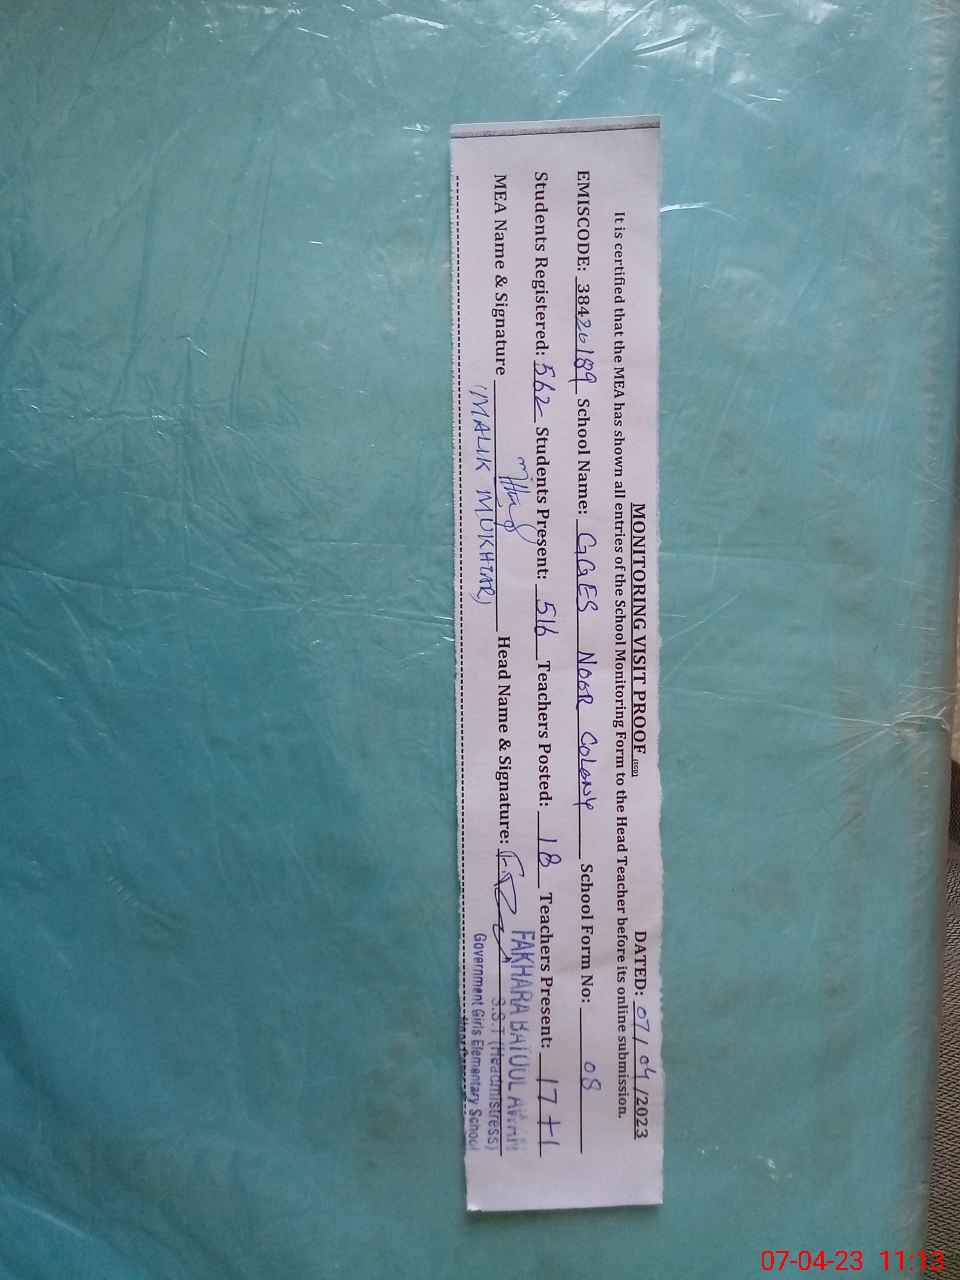 MONITORING VISIT PROOF DATED: 07/04/2023
It is certified that the MEA has shown all entries of the School Monitoring Form to the Head Teacher before its online submission.
EMISCODE: 38420189 School Name: GGES NOOR COLONY School Form No: 08
Students Registered: 562 Students Present: 516 Teachers Posted: 18 Teachers Present: 17+1
MEA Name & Signature Head Name & Signature:
(MALIK MUKHTAR)
FAKHARA BATOOL AWAN
S.S.T (Headmistress)
Government Girls Elementary School
07-04-23 11:13